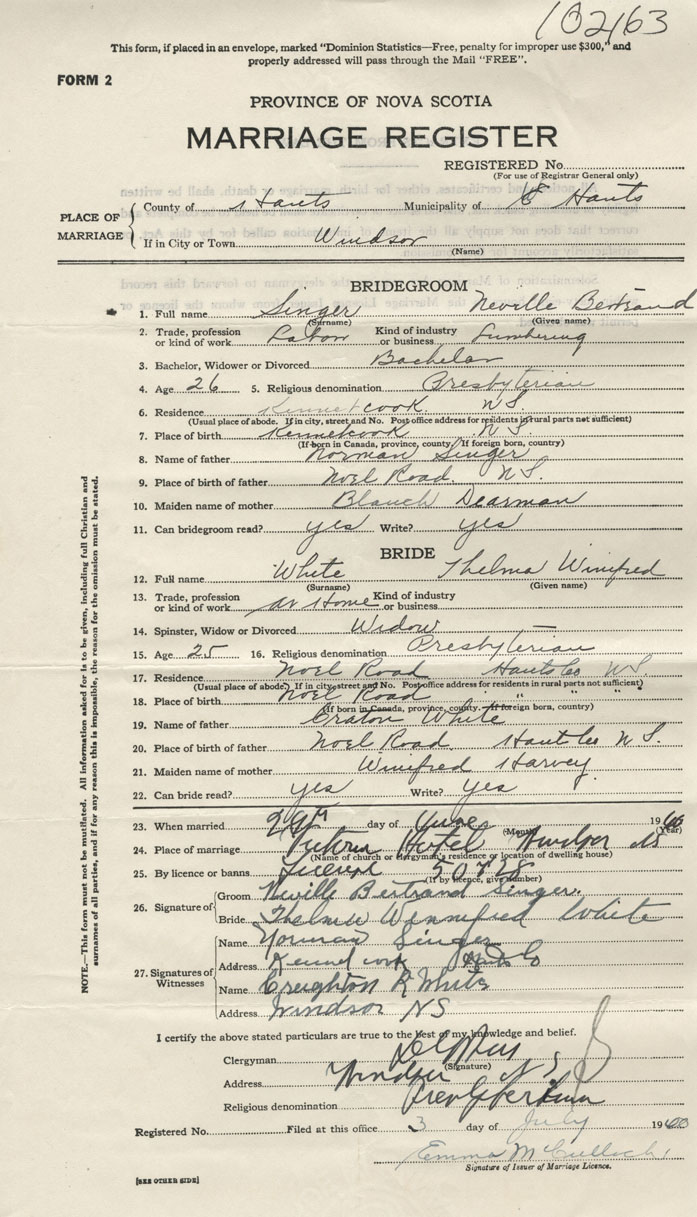 102163
This form, if placed in an envelope, marked "Dominion Statistics—Free, penalty for improper use $300," and
properly addressed will pass through the Mail "FREE".
FORM 2
PROVINCE OF NOVA SCOTIA
MARRIAGE REGISTER
REGISTERED No.
(For use of Registrar General only)
PLACE OF MARRIAGE
County of Hants Municipality of E Hants
If in City or Town Windsor
(Name)
BRIDEGROOM
1. Full name Singer Neville Bertrand
(Surname) (Given name)
2. Trade, profession or kind of work Labor Kind of industry or business Lumbering
3. Bachelor, Widower or Divorced Bachelor
4. Age 26 5. Religious denomination Presbyterian
6. Residence Kennetcook N S
(Usual place of abode. If in city, street and No. Post office address for residents in rural parts not sufficient)
7. Place of birth Kennetcook N S.
(If born in Canada, province, county. If foreign born, country)
8. Name of father Norman Singer
9. Place of birth of father Noel Road. N S.
10. Maiden name of mother Blanch Dearman
11. Can bridegroom read? yes Write? yes
BRIDE
12. Full name White Thelma Winifred
(Surname) (Given name)
13. Trade, profession or kind of work At Home Kind of industry or business
14. Spinster, Widow or Divorced Widow
15. Age 25 16. Religious denomination Presbyterian
17. Residence Noel Road Hants Co N S.
(Usual place of abode. If in city, street and No. Post office address for residents in rural parts not sufficient)
18. Place of birth Noel Road " " "
(If born in Canada, province, county. If foreign born, country)
19. Name of father Craton White
20. Place of birth of father Noel Road. Hants Co N S.
21. Maiden name of mother Winifred Harvey
22. Can bride read? yes Write? yes
23. When married 29th day of June 1940
(Month) (Year)
24. Place of marriage Victoria Hotel Windsor NS
(Name of church or clergyman's residence or location of dwelling house)
25. By licence or banns License 50728
(If by licence, give number)
26. Signature of
Groom Neville Bertrand Singer.
Bride Thelma Winnifred White
27. Signatures of Witnesses
Name Norman Singer
Address Kennetcook Hants Co
Name Creighton R White
Address Windsor NS
I certify the above stated particulars are true to the best of my knowledge and belief.
Clergyman
(Signature)
Address Windsor N S
Religious denomination Presbyterian
Registered No. Filed at this office 3 day of July 1940
Emma McCulloch
Signature of Issuer of Marriage Licence.
[SEE OTHER SIDE]
NOTE.—This form must not be mutilated. All information asked for is to be given, including full Christian and
surnames of all parties, and if for any reason this is impossible, the reason for the omission must be stated.